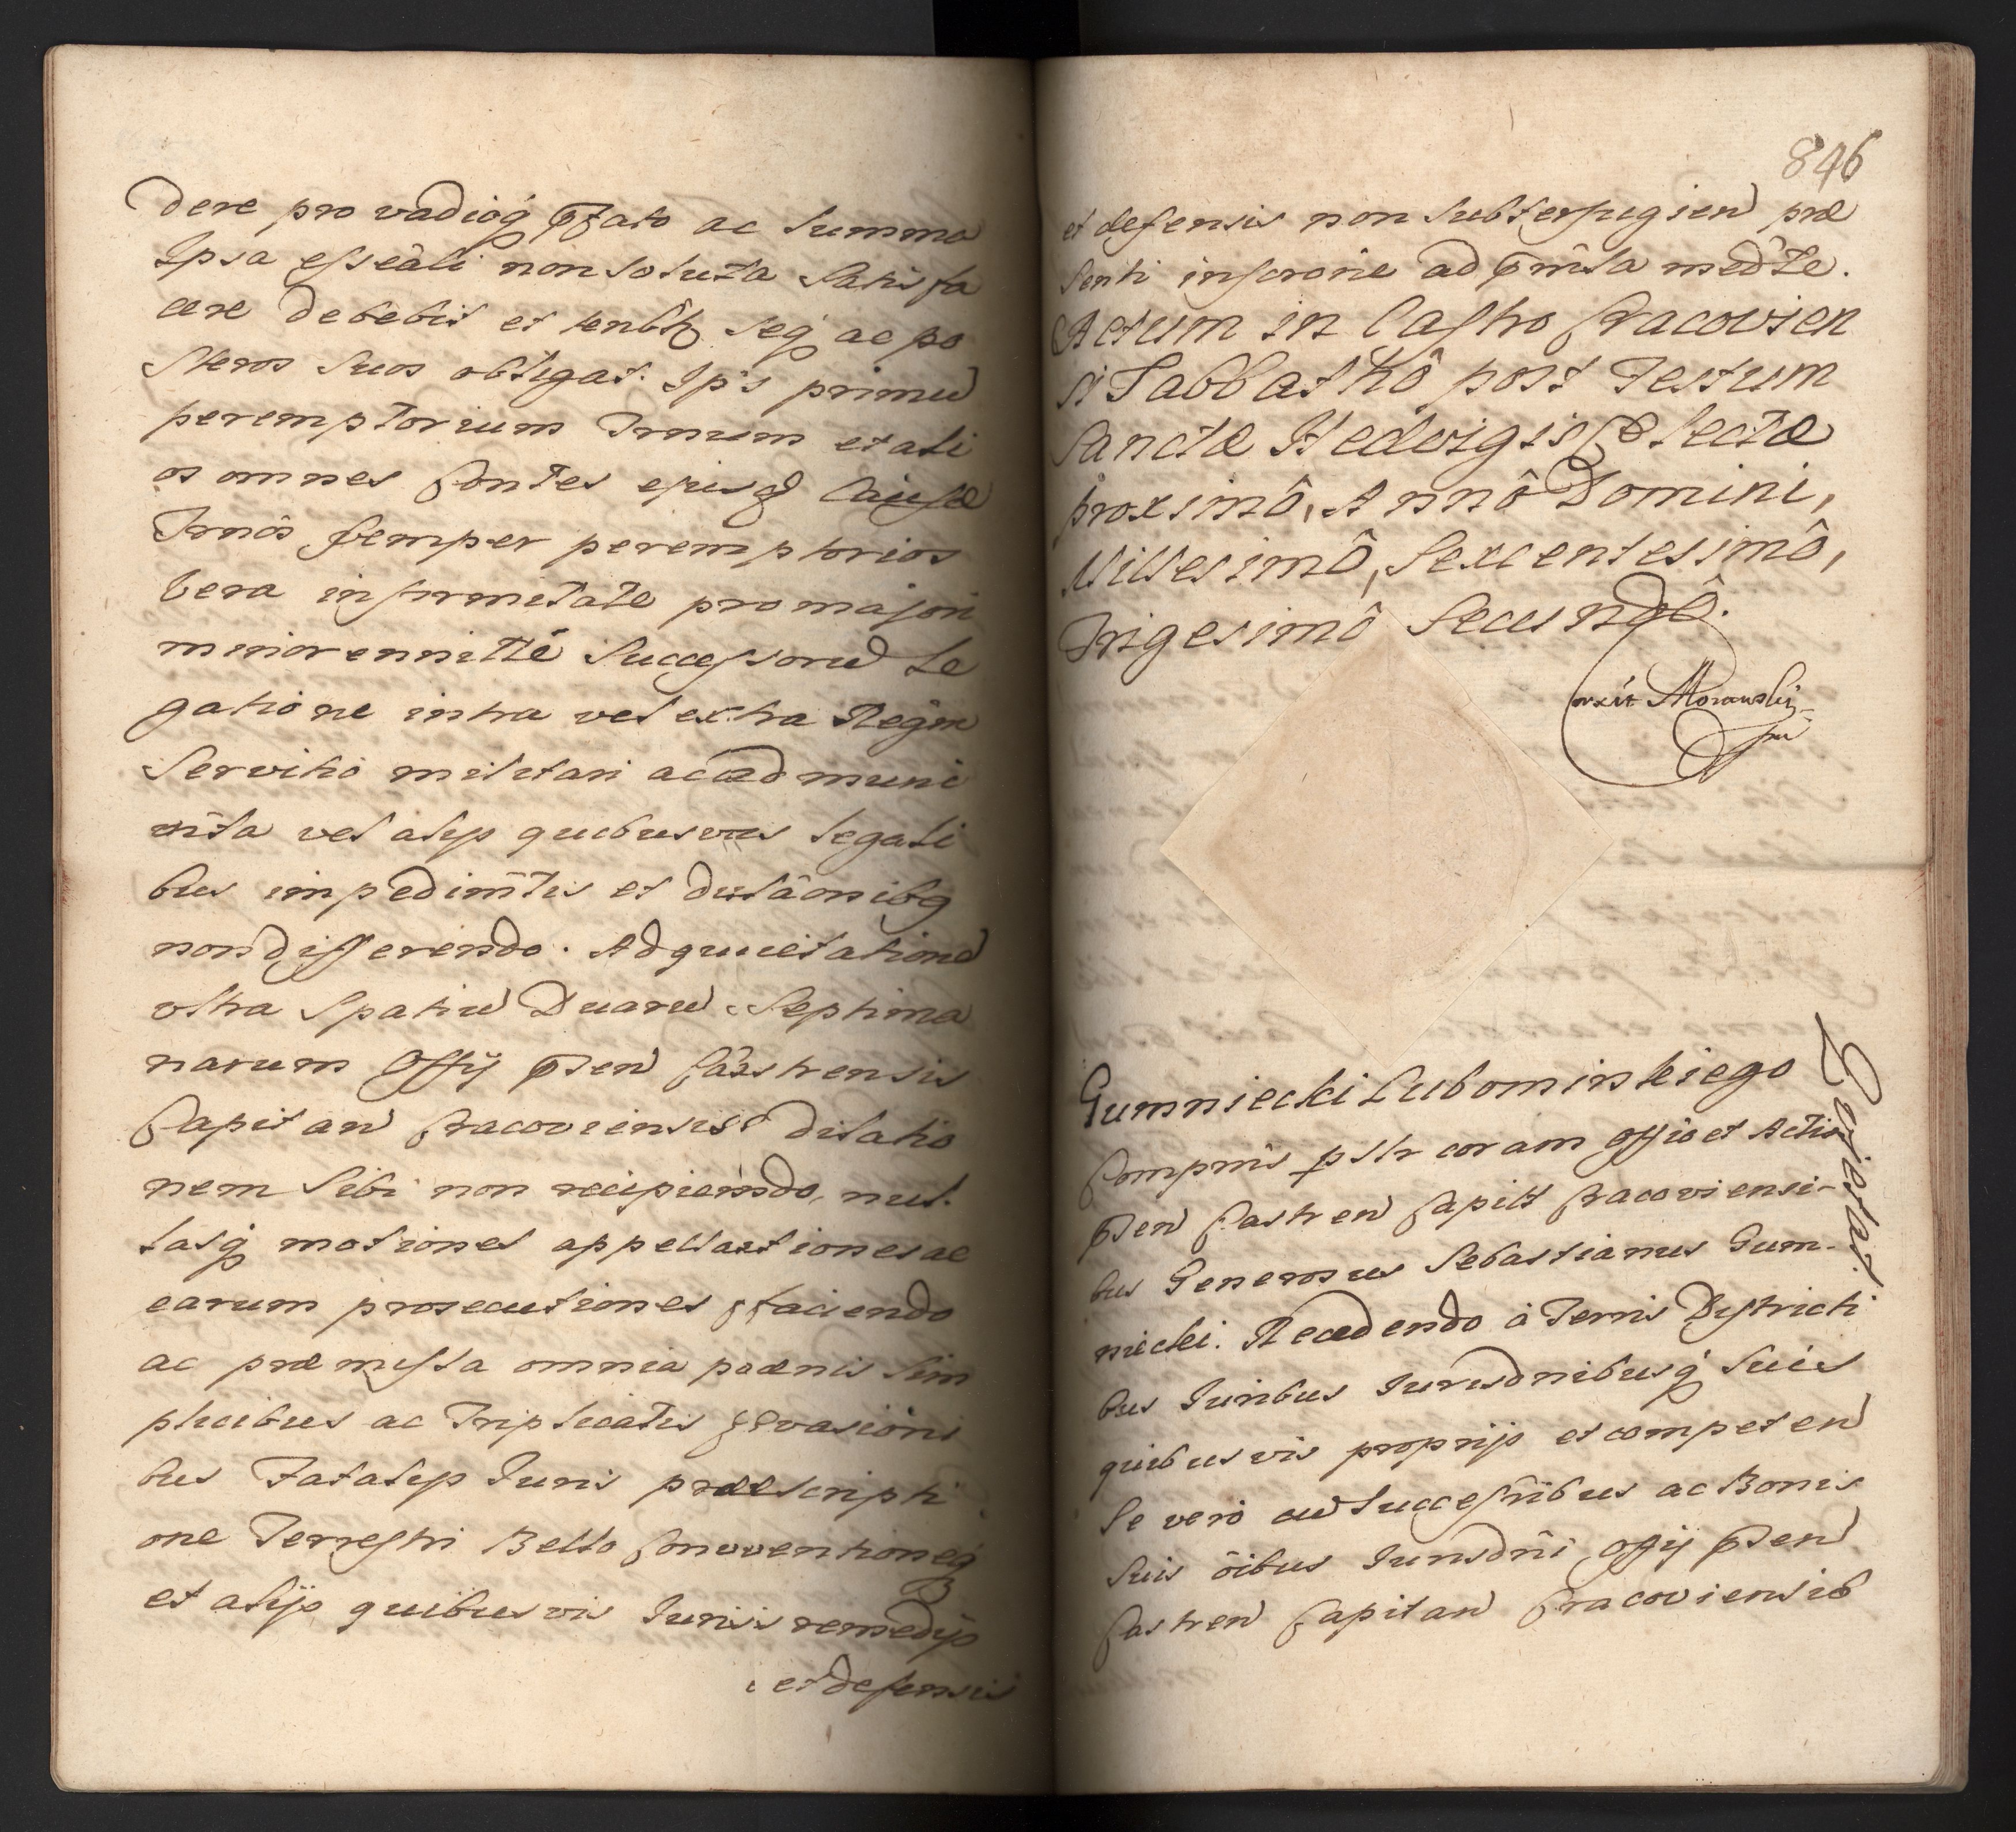 dere pro vadioq́ ꝑfato ac summa
Ipsa essēāli non soluta satisfa
cere debebit et tenbtꝫ seq́ ac po
steros suos obligat. Ip̄s primū
peremptorium Trnum et ali
os omnes Contes ejusꝗ Causæ
Trnôs semper peremptorios
Vera infirmitate pro majori
minorennitte Successorū Le
gatione intra vel extra Regn̄
Servitio militari ac ad muni
mta vel alijs quibusvis legali
bus impedimtis et dilāonibꝗ
non differendo. Ad quietationē
vltra Spatiū Duarū Septima
narum Offij pn̄ten Castrensis
Capitan Cracoviensis dilatio
nem sibi non recipiendo, nul-
lasq́ motiones appellationes ac
earum prosecutiones faciendo
ac præmissa omnia pœnis sim
plicibus ac Triplicatis Evasioni
bus Fatalijs Juris præscripti
one Terrestri Bello Conventioneq́
et alijs quibusvis Juris remedijs
et defensis
846
et defensis non subterfugien præ
senti inscrone ad pmissa medte.
Actum in Castro Cracovien
si Sabbathô post Festum
Sanctæ Hedvigis Electæ
proximô, Annô Domini,
Millesimô, Sexcentesimô,
Trigesimô Secundô.
Morawskij
Gumniecki Lubominskiego
Roborat.
Comprns pstr coram Offio et Actis
pn̄ten Castren Capitt Cracoviensi-
bus Generosus Sebastianus Gum-
niecki. Recedendo à Terris Districti
bus Juribus Jurisdnibusq́ suis
quibusvis proprijs et competen
Se vero cū Successribus ac Bonis
suis ōibus Jurisdni Offij pn̄ten
Castren Capitan Cracoviensib